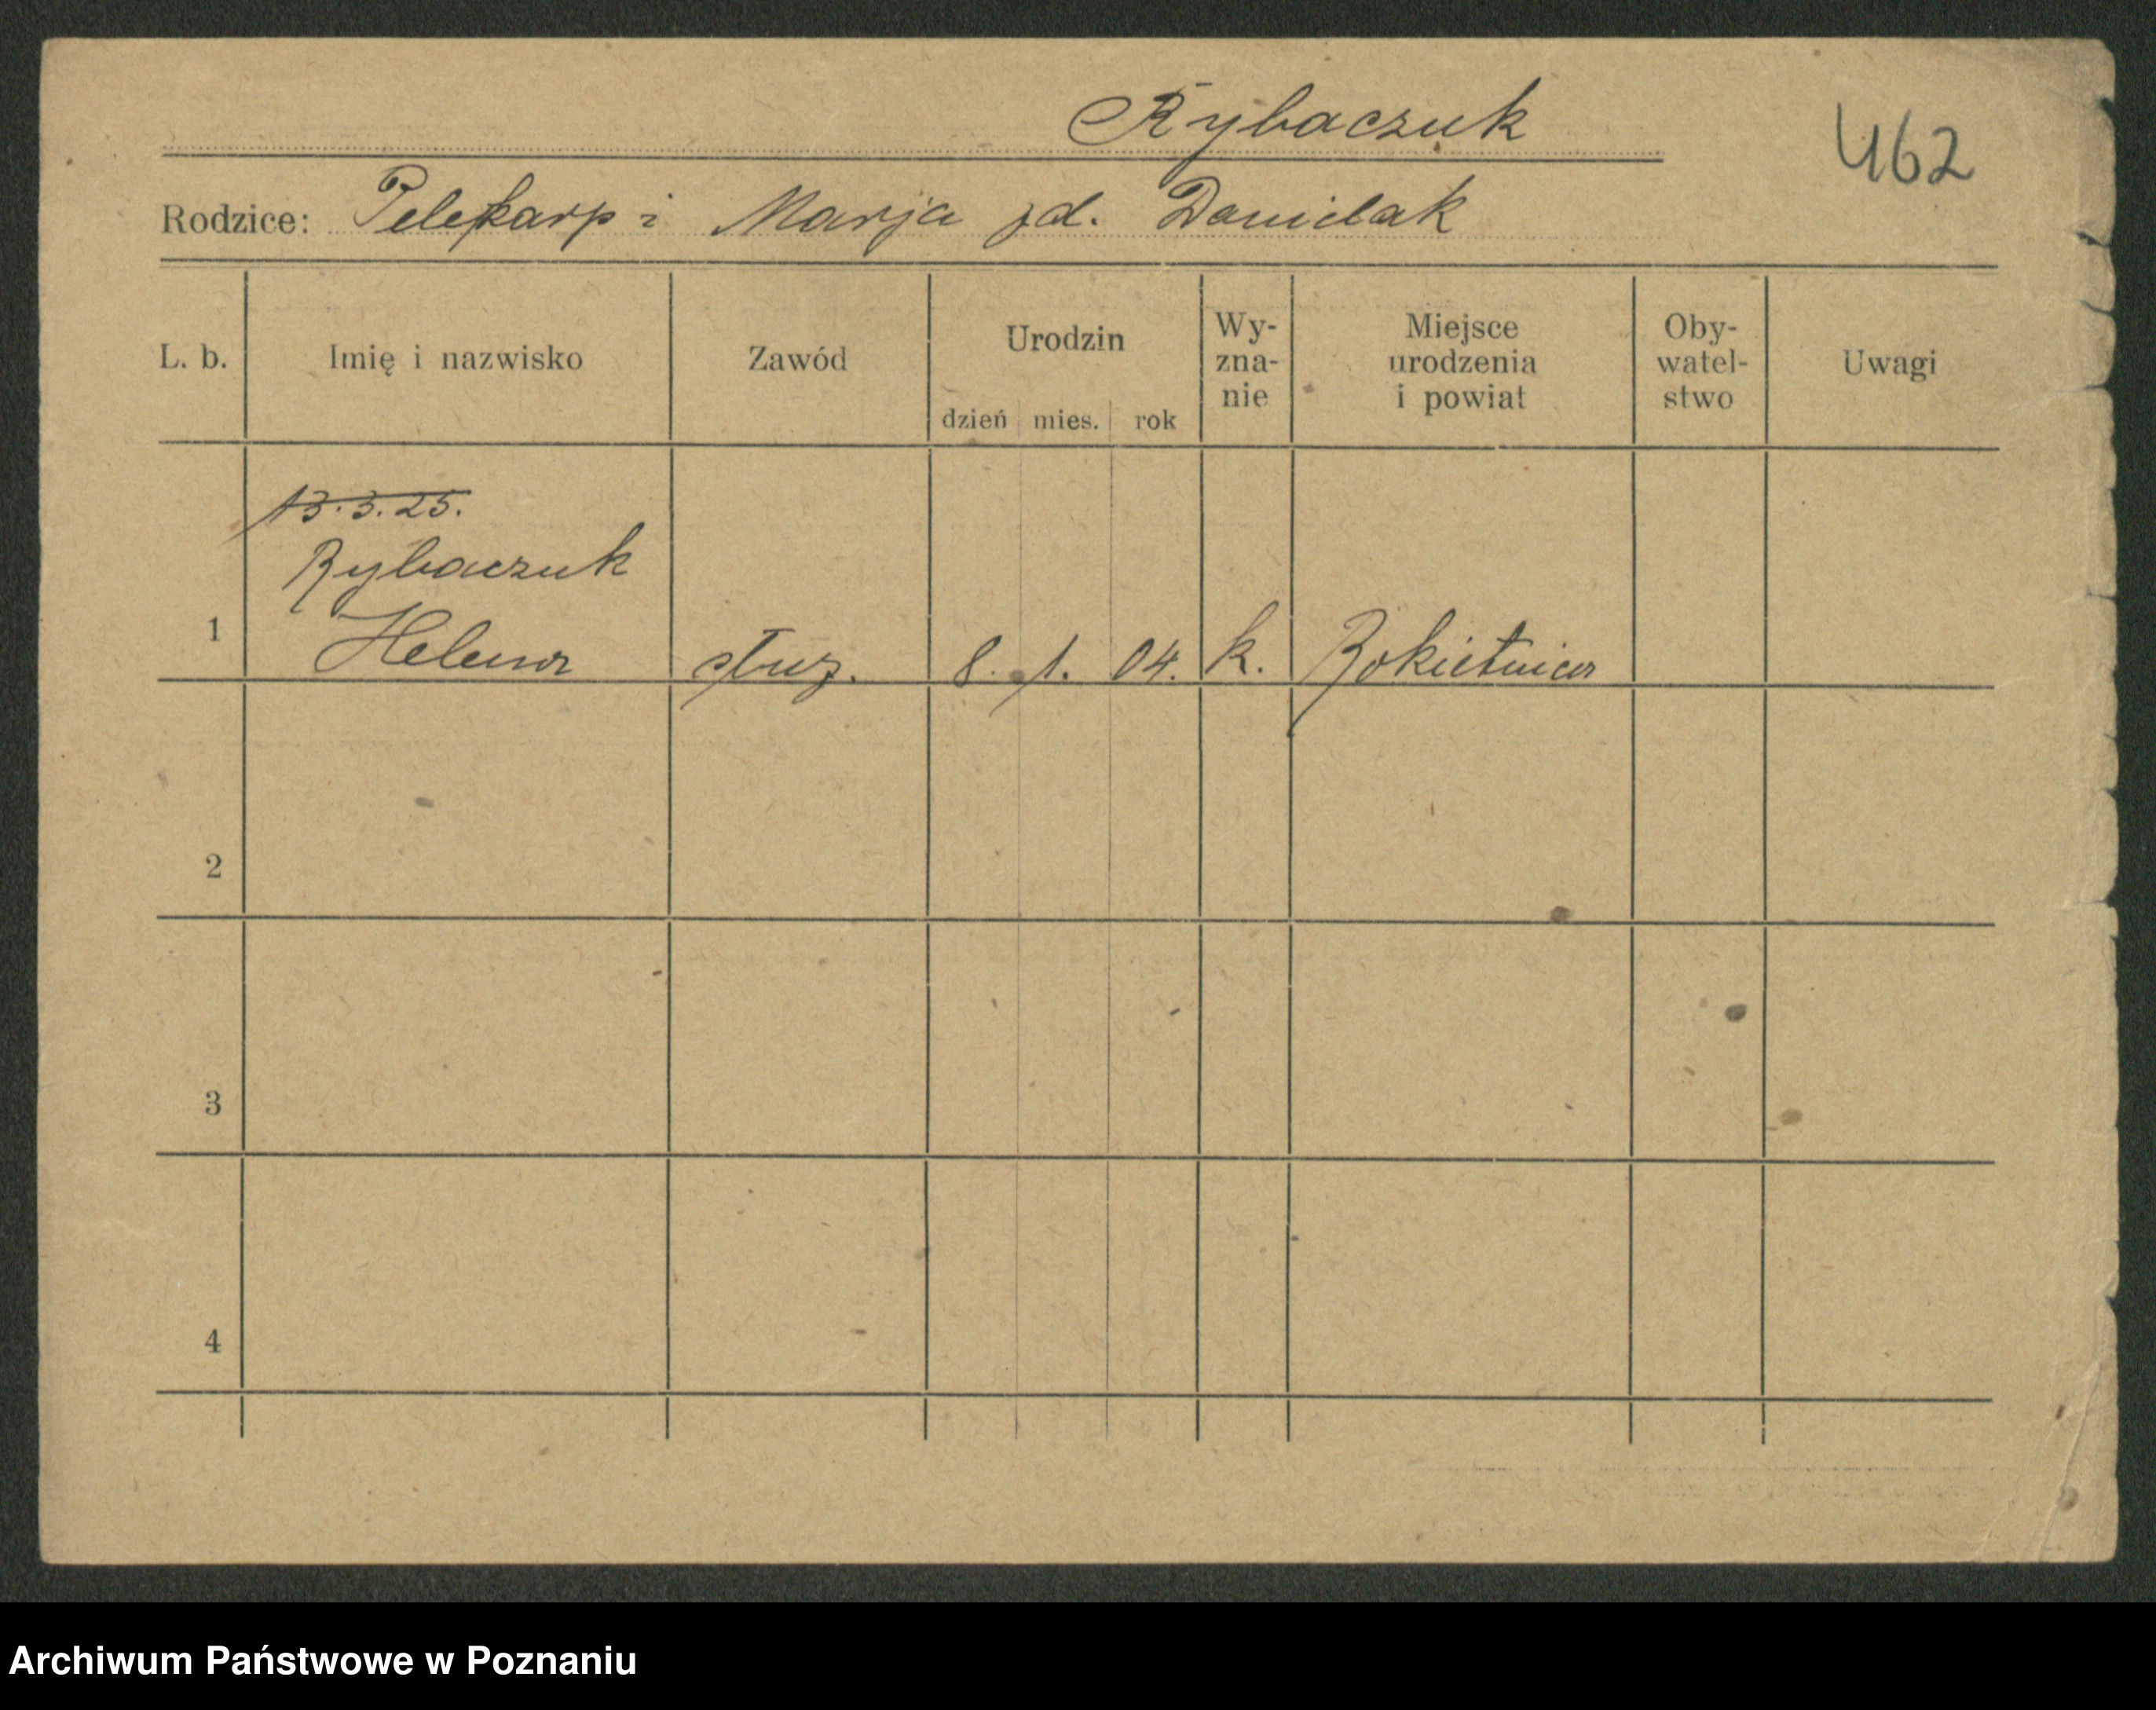 Rybaczuk
462
Rodzice: Pelekarp i Marja zd. Danielak
L. b. Imię i nazwisko Zawód Urodzin dzień mies. rok Wy-zna-nie Miejsce urodzenia i powiat Oby-watel-stwo Uwagi
13.3.25.
Rybaczuk
1 Helena służ. 8. 1. 04. k. Rokietnica
2
3
4
Archiwum Państwowe w Poznaniu